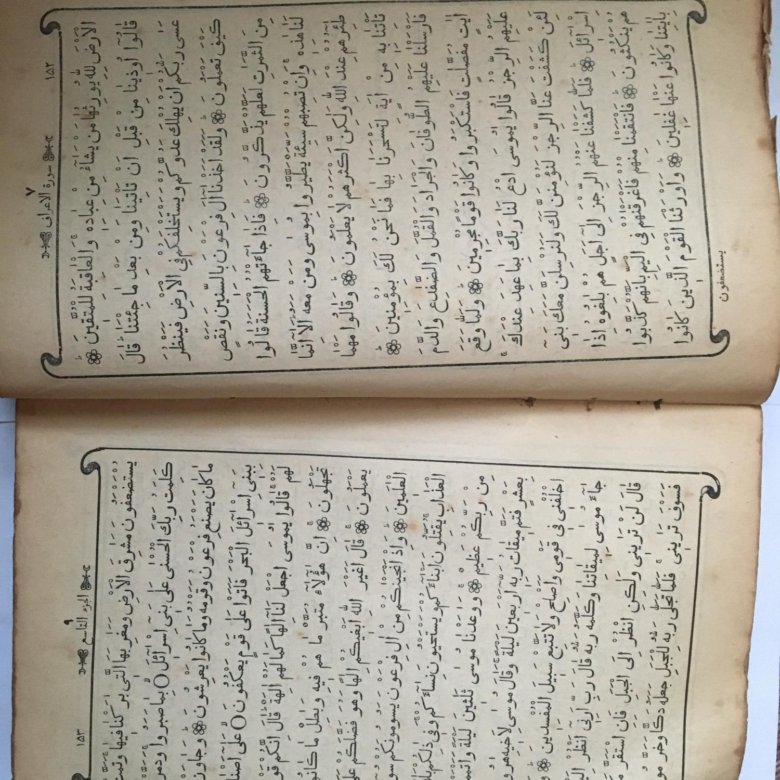 ١٥٢ سورة الاعراف ٧
الْاَرْضَ لِلّٰهِ يُورِثُهَا مَنْ يَشَاءُ مِنْ عِبَادِهٖ وَالْعَاقِبَةُ لِلْمُتَّقِينَ
قَالُوا اُوذِينَا مِنْ قَبْلِ اَنْ تَاْتِيَنَا وَمِنْ بَعْدِ مَا جِئْتَنَا قَالَ
عَسٰى رَبُّكُمْ اَنْ يُهْلِكَ عَدُوَّكُمْ وَيَسْتَخْلِفَكُمْ فِي الْاَرْضِ فَيَنْظُرَ
كَيْفَ تَعْمَلُونَ وَلَقَدْ اَخَذْنَا اٰلَ فِرْعَوْنَ بِالسِّنِينَ وَنَقْصٍ
مِنَ الثَّمَرٰتِ لَعَلَّهُمْ يَذَّكَّرُونَ فَاِذَا جَاءَتْهُمُ الْحَسَنَةُ قَالُوا
لَنَا هٰذِهٖ وَاِنْ تُصِبْهُمْ سَيِّئَةٌ يَطَّيَّرُوا بِمُوسٰى وَمَنْ مَعَهُ اَلَا اِنَّمَا
طٰئِرُهُمْ عِنْدَ اللّٰهِ وَلٰكِنَّ اَكْثَرَهُمْ لَا يَعْلَمُونَ وَقَالُوا مَهْمَا
تَاْتِنَا بِهٖ مِنْ اٰيَةٍ لِتَسْحَرَنَا بِهَا فَمَا نَحْنُ لَكَ بِمُؤْمِنِينَ
فَاَرْسَلْنَا عَلَيْهِمُ الطُّوفَانَ وَالْجَرَادَ وَالْقُمَّلَ وَالضَّفَادِعَ وَالدَّمَ
اٰيٰتٍ مُفَصَّلَاتٍ فَاسْتَكْبَرُوا وَكَانُوا قَوْمًا مُجْرِمِينَ وَلَمَّا وَقَعَ
عَلَيْهِمُ الرِّجْزُ قَالُوا يٰمُوسَى ادْعُ لَنَا رَبَّكَ بِمَا عَهِدَ عِنْدَكَ
لَئِنْ كَشَفْتَ عَنَّا الرِّجْزَ لَنُؤْمِنَنَّ لَكَ وَلَنُرْسِلَنَّ مَعَكَ بَنِي
اِسْرَائِلَ فَلَمَّا كَشَفْنَا عَنْهُمُ الرِّجْزَ اِلٰى اَجَلٍ هُمْ بٰلِغُوهُ اِذَا
هُمْ يَنْكُثُونَ فَانْتَقَمْنَا مِنْهُمْ فَاَغْرَقْنٰهُمْ فِي الْيَمِّ بِاَنَّهُمْ كَذَّبُوا
بِاٰيٰتِنَا وَكَانُوا عَنْهَا غٰفِلِينَ وَاَوْرَثْنَا الْقَوْمَ الَّذِينَ كَانُوا
يستضعفون
الجزء التاسع ٩ ١٥٣
يُسْتَضْعَفُونَ مَشَارِقَ الْاَرْضِ وَمَغَارِبَهَا الَّتِي بٰرَكْنَا فِيهَا وَتَمَّتْ
كَلِمَتُ رَبِّكَ الْحُسْنٰى عَلٰى بَنِي اِسْرَائِلَ بِمَا صَبَرُوا
مَا كَانَ يَصْنَعُ فِرْعَوْنُ وَقَوْمُهُ وَمَا كَانُوا يَعْرِشُونَ
بِبَنِي اِسْرَائِلَ الْبَحْرَ فَاَتَوْا عَلٰى قَوْمٍ يَعْكُفُونَ عَلٰى
لَهُمْ قَالُوا يٰمُوسَى اجْعَلْ لَنَا اِلٰهًا كَمَا لَهُمْ اٰلِهَةٌ قَالَ اِنَّكُمْ
تَجْهَلُونَ اِنَّ هٰؤُلَاءِ مُتَبَّرٌ مَا هُمْ فِيهِ وَبٰطِلٌ مَا
يَعْمَلُونَ قَالَ اَغَيْرَ اللّٰهِ اَبْغِيكُمْ اِلٰهًا وَهُوَ فَضَّلَكُمْ
الْعٰلَمِينَ وَاِذْ اَنْجَيْنٰكُمْ مِنْ اٰلِ فِرْعَوْنَ يَسُومُونَكُمْ
الْعَذَابِ يُقَتِّلُونَ اَبْنَاءَكُمْ وَيَسْتَحْيُونَ نِسَاءَكُمْ وَفِي ذٰلِكُمْ
مِنْ رَبِّكُمْ عَظِيمٌ وَوٰعَدْنَا مُوسٰى ثَلٰثِينَ لَيْلَةً
بِعَشْرٍ فَتَمَّ مِيقَاتُ رَبِّهٖ اَرْبَعِينَ لَيْلَةً وَقَالَ مُوسٰى لِاَخِيهِ
اخْلُفْنِي فِي قَوْمِي وَاَصْلِحْ وَلَا تَتَّبِعْ سَبِيلَ الْمُفْسِدِينَ
جَاءَ مُوسٰى لِمِيقَاتِنَا وَكَلَّمَهُ رَبُّهُ قَالَ رَبِّ اَرِنِي اَنْظُرْ
قَالَ لَنْ تَرٰينِي وَلٰكِنِ انْظُرْ اِلَى الْجَبَلِ فَاِنِ اسْتَقَرَّ
فَسَوْفَ تَرٰينِي فَلَمَّا تَجَلّٰى رَبُّهُ لِلْجَبَلِ جَعَلَهُ دَكًّا وَخَرَّ